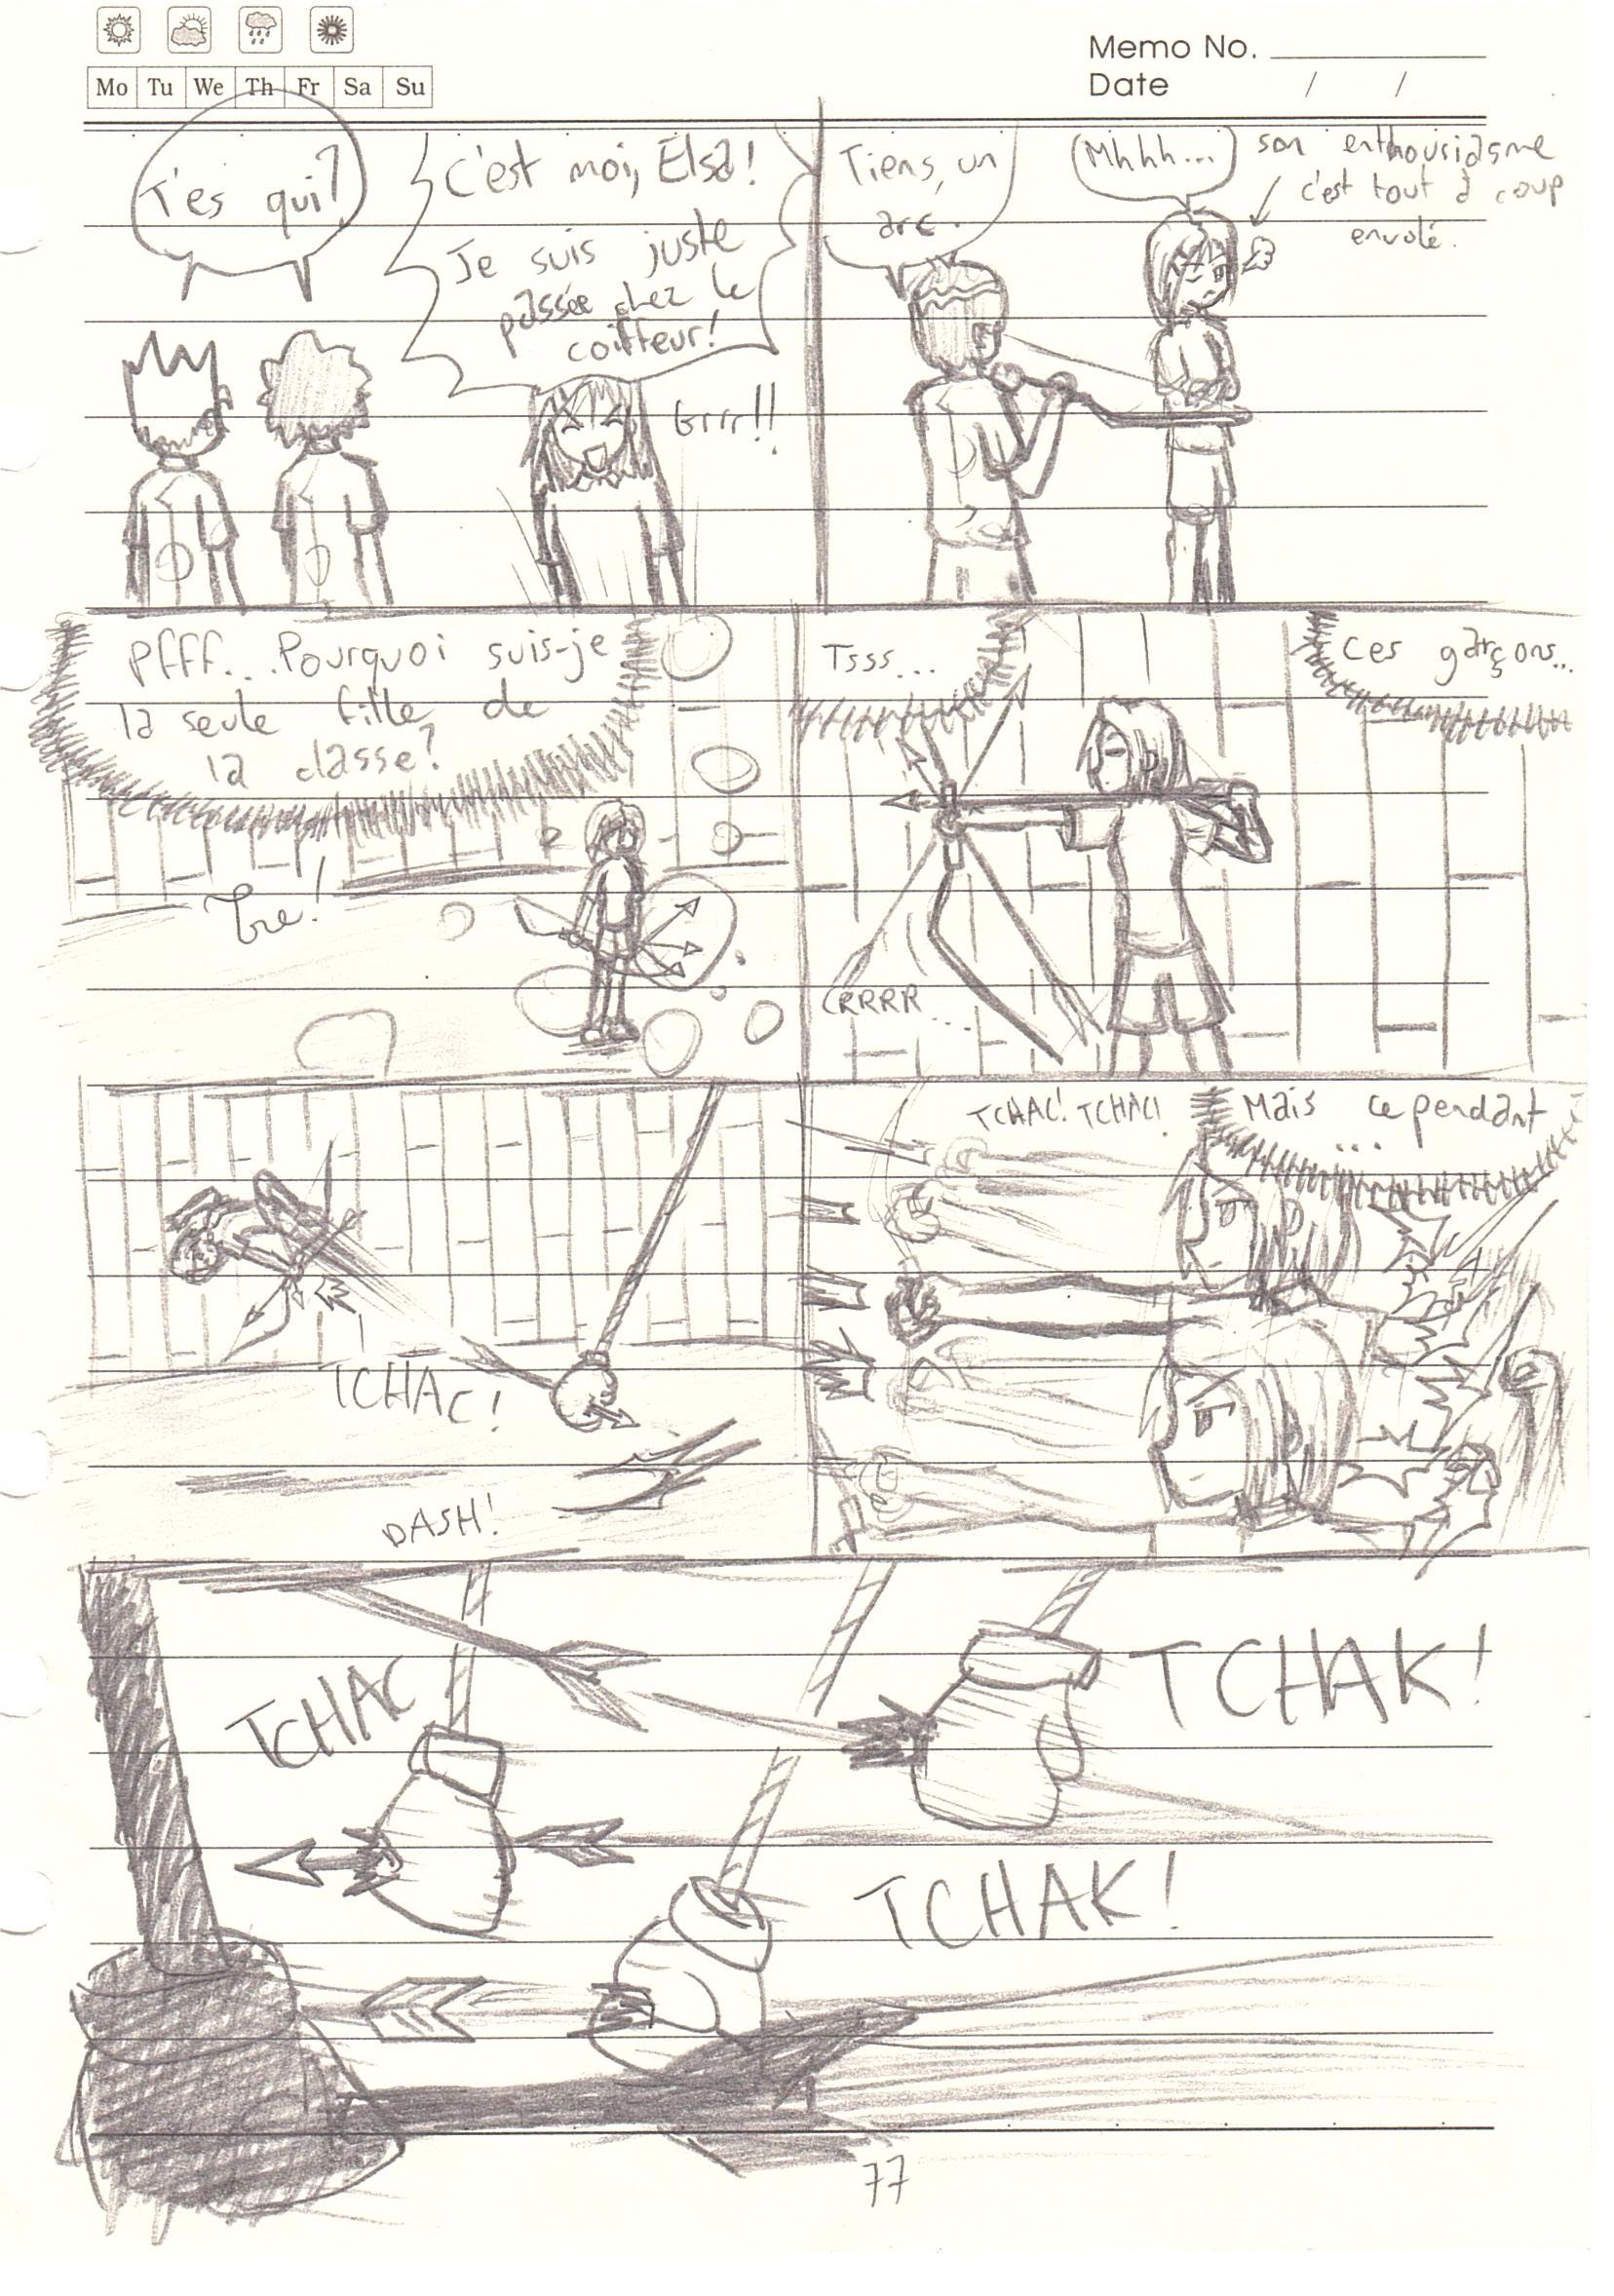 Memo No.
Mo Tu We Th Fr Sa Su
Date / /
T'es qui?
C'est moi, Elsa!
Je suis juste
passée chez le
coiffeur!
Grrr!!
Tiens, un
arc.
Mhhh...
son enthousiasme
c'est tout à coup
envolé.
Pfff... Pourquoi suis-je
la seule fille de
la classe?
Tsss...
Ces garçons...
CRRRR...
TCHAC!
DASH!
TCHAC! TCHAC!
Mais cependant
...
TCHAC
TCHAK!
TCHAK!
77